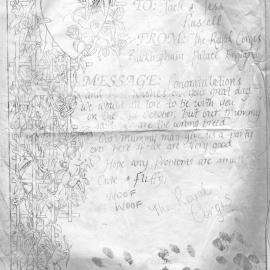 TO: Jack & Jess
Russell
FROM: The Royal Corgis
Buckingham Palace England
MESSAGE: Congratulations
and best wishes on your great day
we would all love to be with you
on the October, but our mummy
said we are the wrong breed
Our mummy may give us a party
over here if we are very good
Hope any problems are small
Cute & fluffy
WOOF
WOOF
The Royal
Corgis